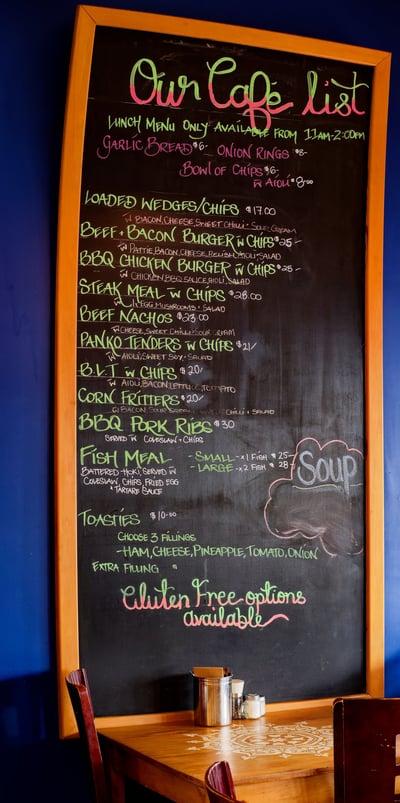 Our Café list
LUNCH MENU ONLY AVAILABLE FROM 11AM-2:00PM
GARLIC BREAD $6- ONION RINGS $8-
BOWL OF CHIPS $6-
W AIOLI $8-00
LOADED WEDGES/CHIPS $17.00
W BACON, CHEESE, SWEET CHILLI + SOUR CREAM
BEEF + BACON BURGER W CHIPS $25-
W PATTIE, BACON, CHEESE, RELISH, AIOLI + SALAD
BBQ CHICKEN BURGER W CHIPS $25-
W CHICKEN, BBQ SAUCE, AIOLI, SALAD
STEAK MEAL W CHIPS $28.00
EGG, MUSHROOMS + SALAD
BEEF NACHOS $23.00
W CHEESE, SWEET CHILLI + SOUR CREAM
PANKO TENDERS W CHIPS $21/
W AIOLI, SWEET SOY + SALAD
B.L.T W CHIPS $20/
W AIOLI, BACON, LETTUCE, TOMATO
CORN FRITTERS $20/
W BACON SOUR CREAM CHILLI + SALAD
BBQ PORK RIBS $30
SERVED W COLESLAW + CHIPS
FISH MEAL - SMALL - x1 FISH $25-
- LARGE - x2 FISH $28-
BATTERED HOKI, SERVED W
COLESLAW, CHIPS, FRIED EGG
+ TARTARE SAUCE
SOUP
TOASTIES $10-00
CHOOSE 3 FILLINGS
- HAM, CHEESE, PINEAPPLE, TOMATO, ONION
EXTRA FILLING
Gluten Free options
available